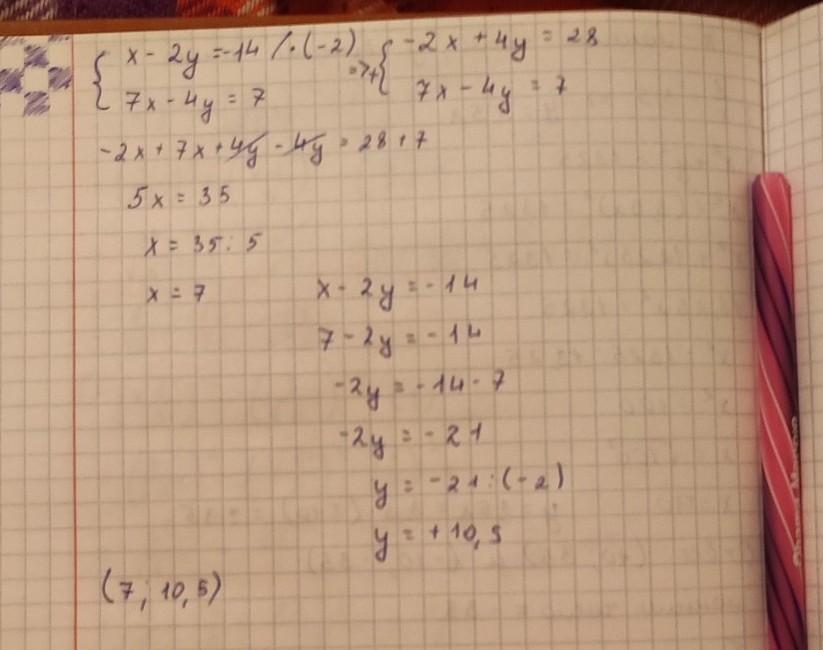 { x - 2y = -14 /·(-2) => + { -2x + 4y = 28
7x - 4y = 7 7x - 4y = 7
-2x + 7x + 4y - 4y = 28 + 7
5x = 35
x = 35 : 5
x = 7 x - 2y = -14
7 - 2y = -14
-2y = -14 - 7
-2y = -21
y = -21 : (-2)
y = +10,5
(7; 10,5)